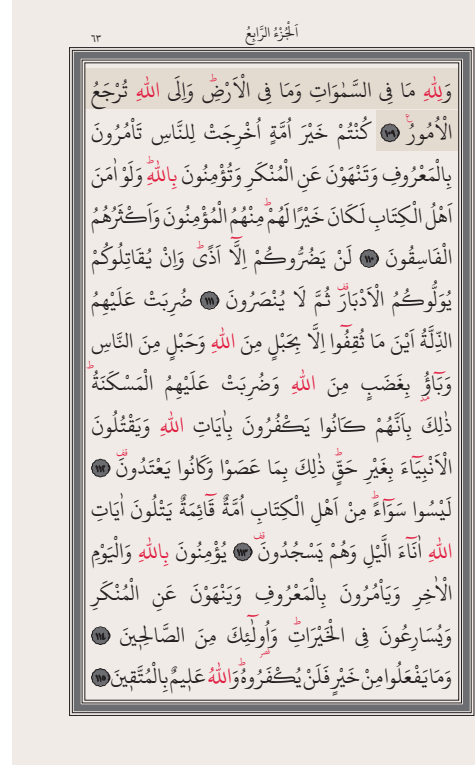 اَلْجُزْءُ الرَّابِعُ
٦٣
وَلِلّٰهِ مَا فِى السَّمٰوَاتِ وَمَا فِى الْاَرْضِۜ وَاِلَى اللّٰهِ تُرْجَعُ
الْاُمُورُ۟ ﴿١٠٩﴾ كُنْتُمْ خَيْرَ اُمَّةٍ اُخْرِجَتْ لِلنَّاسِ تَأْمُرُونَ
بِالْمَعْرُوفِ وَتَنْهَوْنَ عَنِ الْمُنْكَرِ وَتُؤْمِنُونَ بِاللّٰهِۜ وَلَوْ اٰمَنَ
اَهْلُ الْكِتَابِ لَكَانَ خَيْرًا لَهُمْۜ مِنْهُمُ الْمُؤْمِنُونَ وَاَكْثَرُهُمُ
الْفَاسِقُونَ ﴿١١٠﴾ لَنْ يَضُرُّوكُمْ اِلَّٓا اَذًىۜ وَاِنْ يُقَاتِلُوكُمْ
يُوَلُّوكُمُ الْاَدْبَارَ۠ ثُمَّ لَا يُنْصَرُونَ ﴿١١١﴾ ضُرِبَتْ عَلَيْهِمُ
الذِّلَّةُ اَيْنَ مَا ثُقِفُٓوا اِلَّا بِحَبْلٍ مِنَ اللّٰهِ وَحَبْلٍ مِنَ النَّاسِ
وَبَٓاؤُ۫ بِغَضَبٍ مِنَ اللّٰهِ وَضُرِبَتْ عَلَيْهِمُ الْمَسْكَنَةُۜ
ذٰلِكَ بِاَنَّهُمْ كَانُوا يَكْفُرُونَ بِاٰيَاتِ اللّٰهِ وَيَقْتُلُونَ
الْاَنْبِيَٓاءَ بِغَيْرِ حَقٍّۜ ذٰلِكَ بِمَا عَصَوْا وَكَانُوا يَعْتَدُونَ۠ ﴿١١٢﴾
لَيْسُوا سَوَٓاءًۜ مِنْ اَهْلِ الْكِتَابِ اُمَّةٌ قَٓائِمَةٌ يَتْلُونَ اٰيَاتِ
اللّٰهِ اٰنَٓاءَ الَّيْلِ وَهُمْ يَسْجُدُونَ۠ ﴿١١٣﴾ يُؤْمِنُونَ بِاللّٰهِ وَالْيَوْمِ
الْاٰخِرِ وَيَأْمُرُونَ بِالْمَعْرُوفِ وَيَنْهَوْنَ عَنِ الْمُنْكَرِ
وَيُسَارِعُونَ فِى الْخَيْرَاتِۜ وَاُو۬لٰٓئِكَ مِنَ الصَّالِحٖينَ ﴿١١٤﴾
وَمَا يَفْعَلُوا مِنْ خَيْرٍ فَلَنْ يُكْفَرُوهُۜ وَاللّٰهُ عَلٖيمٌ بِالْمُتَّقٖينَ ﴿١١٥﴾